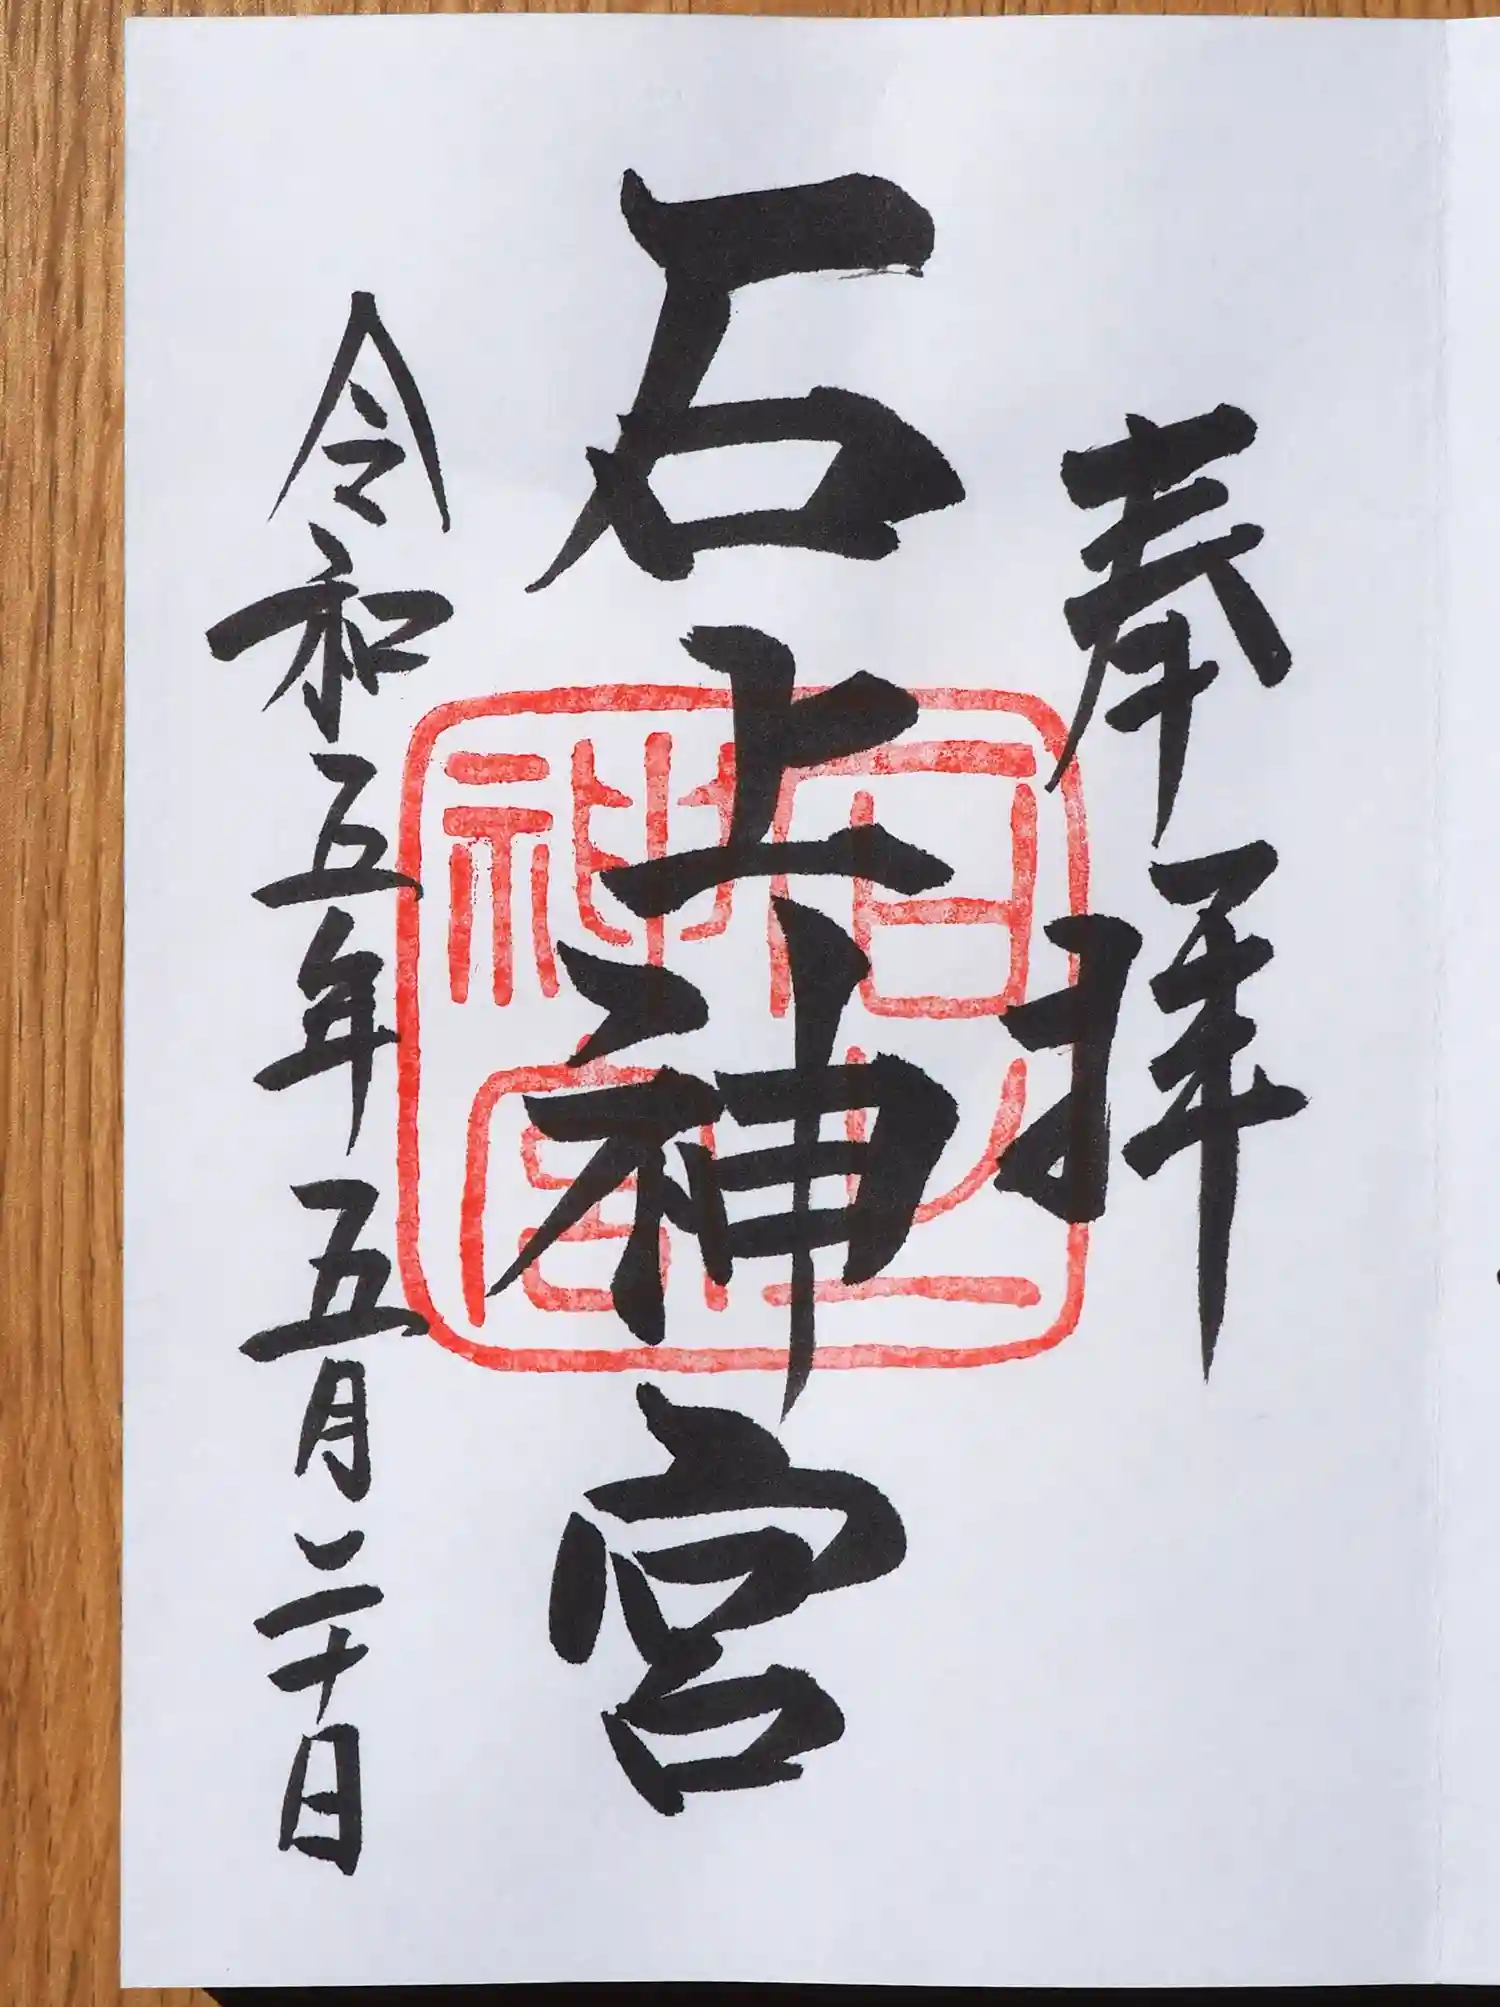 奉拝
石上神宮
令和五年五月二十日
石上神宮